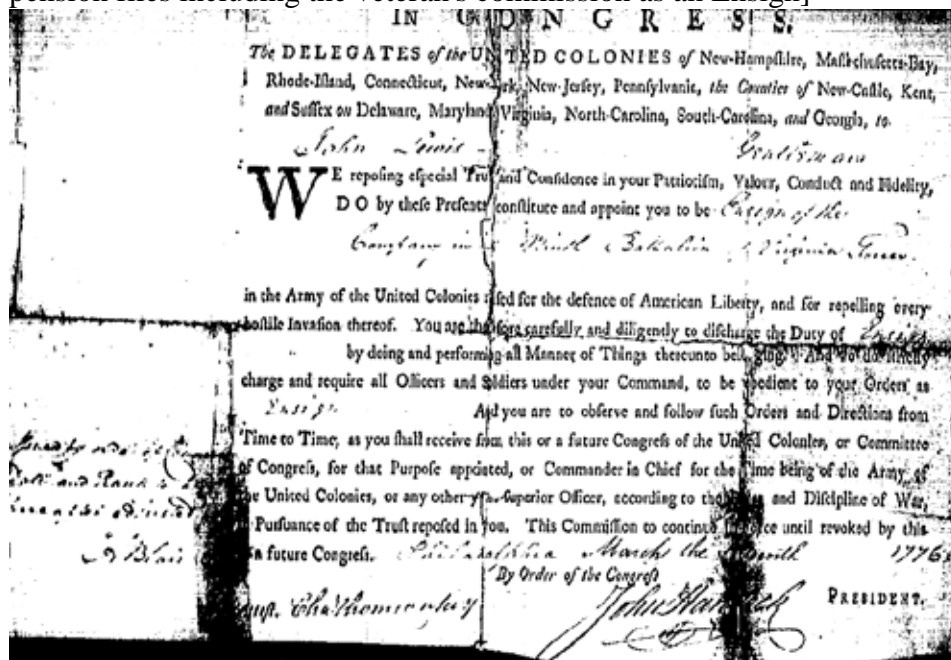 pension files including the veteran's commission as an Ensign]
IN CONGRESS.
The DELEGATES of the UNITED COLONIES of New-Hampſhire, Maſſachuſetts-Bay,
Rhode-Iſland, Connecticut, New-York, New-Jerſey, Pennſylvania, the Counties of New-Caſtle, Kent,
and Suſſex on Delaware, Maryland, Virginia, North-Carolina, South-Carolina, and Georgia, to
John Lewis Gentleman
WE repoſing eſpecial Truſt and Confidence in your Patriotiſm, Valour, Conduct and Fidelity,
DO by theſe Preſents conſtitute and appoint you to be Enſign of the
Company in Ninth Battalion Virginia Forces
in the Army of the United Colonies raiſed for the defence of American Liberty, and for repelling every
hoſtile Invaſion thereof. You are therefore carefully and diligently to diſcharge the Duty of Enſign
by doing and performing all Manner of Things thereunto belonging. And we do ſtrictly
charge and require all Officers and Soldiers under your Command, to be obedient to your Orders as
Enſign And you are to obſerve and follow ſuch Orders and Directions from
Time to Time, as you ſhall receive from this or a future Congreſs of the United Colonies, or Committee
of Congreſs, for that Purpoſe appointed, or Commander in Chief for the Time being of the Army of
the United Colonies, or any other your Superior Officer, according to the Rules and Diſcipline of War,
in Purſuance of the Truſt repoſed in you. This Commiſſion to continue in Force until revoked by this
or a future Congreſs. Philadelphia March the 1776
By Order of the Congreſs
Atteſt. Cha Thomson ſecy John Hancock PRESIDENT.
and Rank
Blair